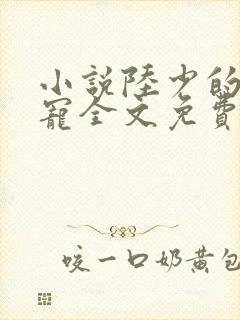 小説陸少的
寵全文免費
咬一口奶黄包